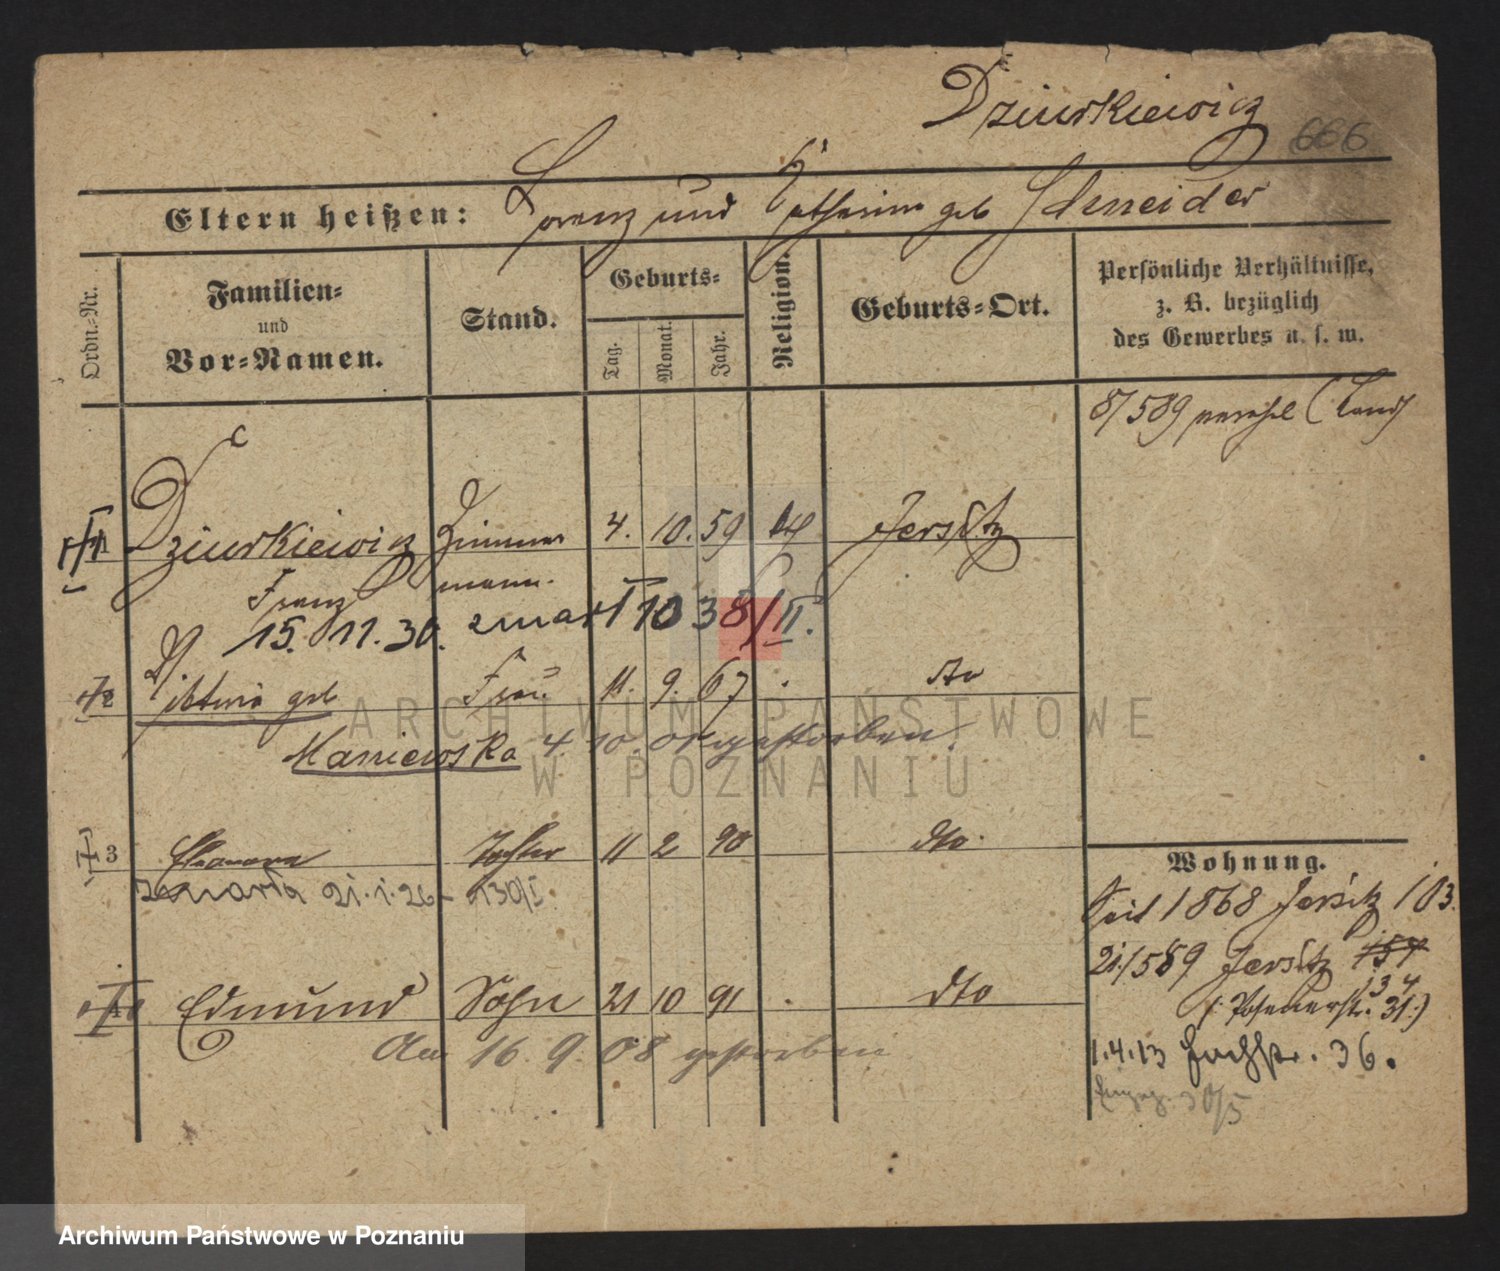 Dziurkiewicz 666
Eltern heißen: Lorenz und Catharina geb Schneider
Ordn.-Nr.
Familien- und Vor-Namen.
Stand.
Geburts-
Tag. Monat. Jahr.
Religion.
Geburts-Ort.
Persönliche Verhältnisse, z. B. bezüglich des Gewerbes u. s. w.
8/589
1 Dziurkiewicz Zimmer 4. 10. 59 Jersitz
Franz mann.
15. 11. 30. zmarł 10 38/II.
2 geb Frau 11. 9. 67 . dto
Maniewska 4. 10. gestorben.
3 Eleonora Tochter 11 2 90 dto.
zmarła 21.1.26 - 130/I
Edmund Sohn 21 10 91 . dto
Am 16. 9. 08 gestorben
Wohnung.
Seit 1868 Jersitz 103.
21/589 Jersitz 157
34
(: Posenerstr. 31:)
1.4.13 36.
30/5
ARCHIWUM PAŃSTWOWE
W POZNANIU
Archiwum Państwowe w Poznaniu